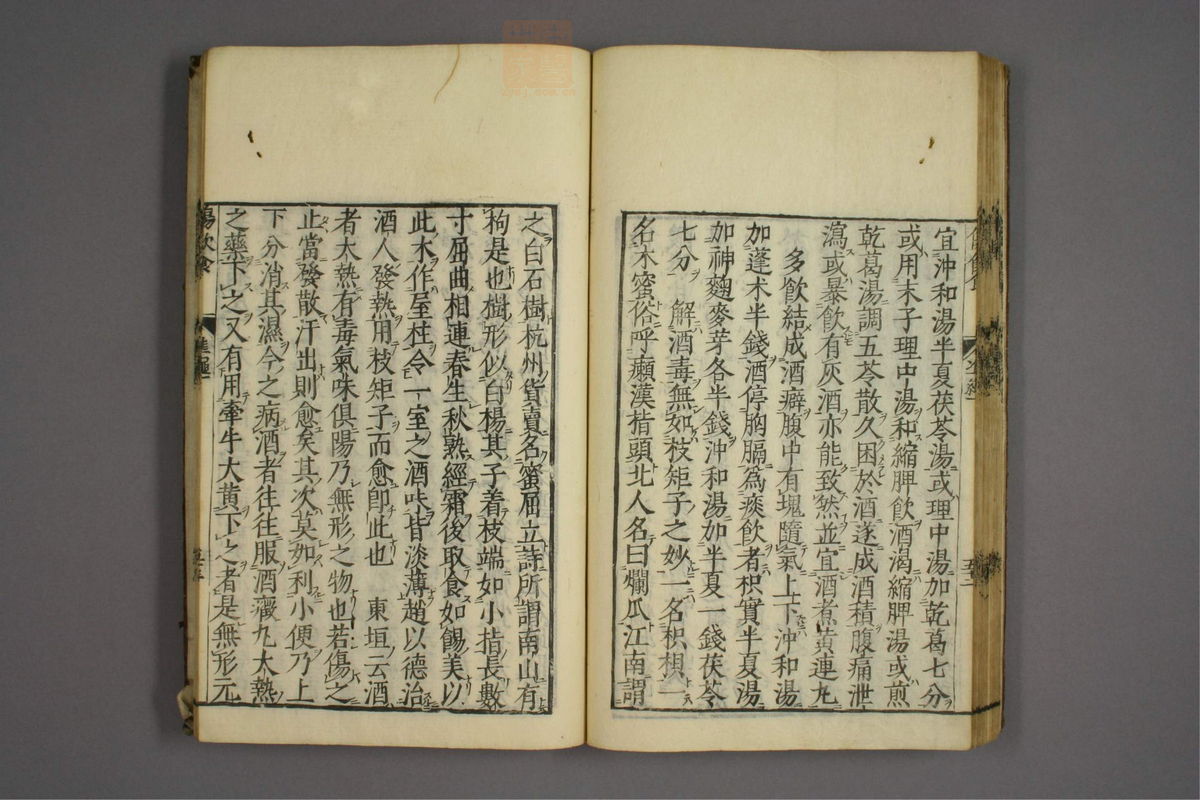 宜沖和湯半夏茯苓湯或理中湯加乾葛七分
或用末子理中湯和縮脾飲酒渴縮脾湯或煎
乾葛湯調五苓散久困於酒遂成酒積腹痛泄
瀉或暴飲有灰酒亦能致然並宜酒煮黄連丸
多飲結成酒癖腹中有塊隨氣上下沖和湯
加蓬朮半錢酒停胸膈爲痰飲者枳實半夏湯
加神麯麥芽各半錢沖和湯加半夏一錢茯苓
七分 解酒毒無如枝矩子之妙一名枳椇一
名木蜜俗呼癩漢指頭北人名曰爛瓜江南謂
之白石樹杭州貨賣名蜜屈立詩所謂南山有
枸是也樹形似白楊其子着枝端如小指長數
寸屈曲相連春生秋熟經霜後取食如餳美以
此木作屋柱令一室之酒味皆淡薄趙以德治
酒人發熱用枝矩子而愈即此也 東垣云酒
者大熱有毒氣味俱陽乃無形之物也若傷之
止當發散汗出則愈矣其次莫如利小便乃上
下分消其濕今之病酒者往往服酒癥丸大熱
之藥下之又有用牽牛大黄下之者是無形元
傷飲食